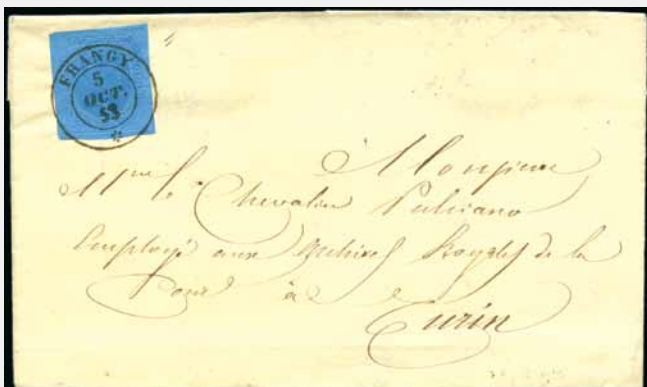 FRANGY
5
OCT.
53
Monsieur
Le Chevalier
Employé aux Archives Royales de la
Cour à
Turin